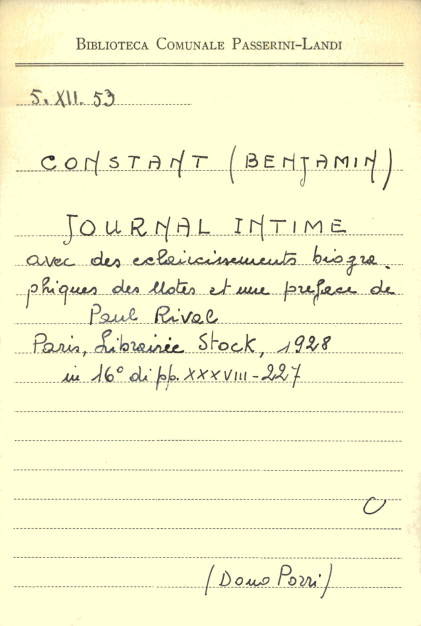 BIBLIOTECA COMUNALE PASSERINI-LANDI
5. XII. 53
CONSTANT (BENJAMIN)
JOURNAL INTIME
avec des eclaircissements biogra-
phiques des Notes et une preface de
Paul Rival
Paris, Librairie Stock, 1928
in 16° di pp. XXXVIII-227
C
(Dono Porri)